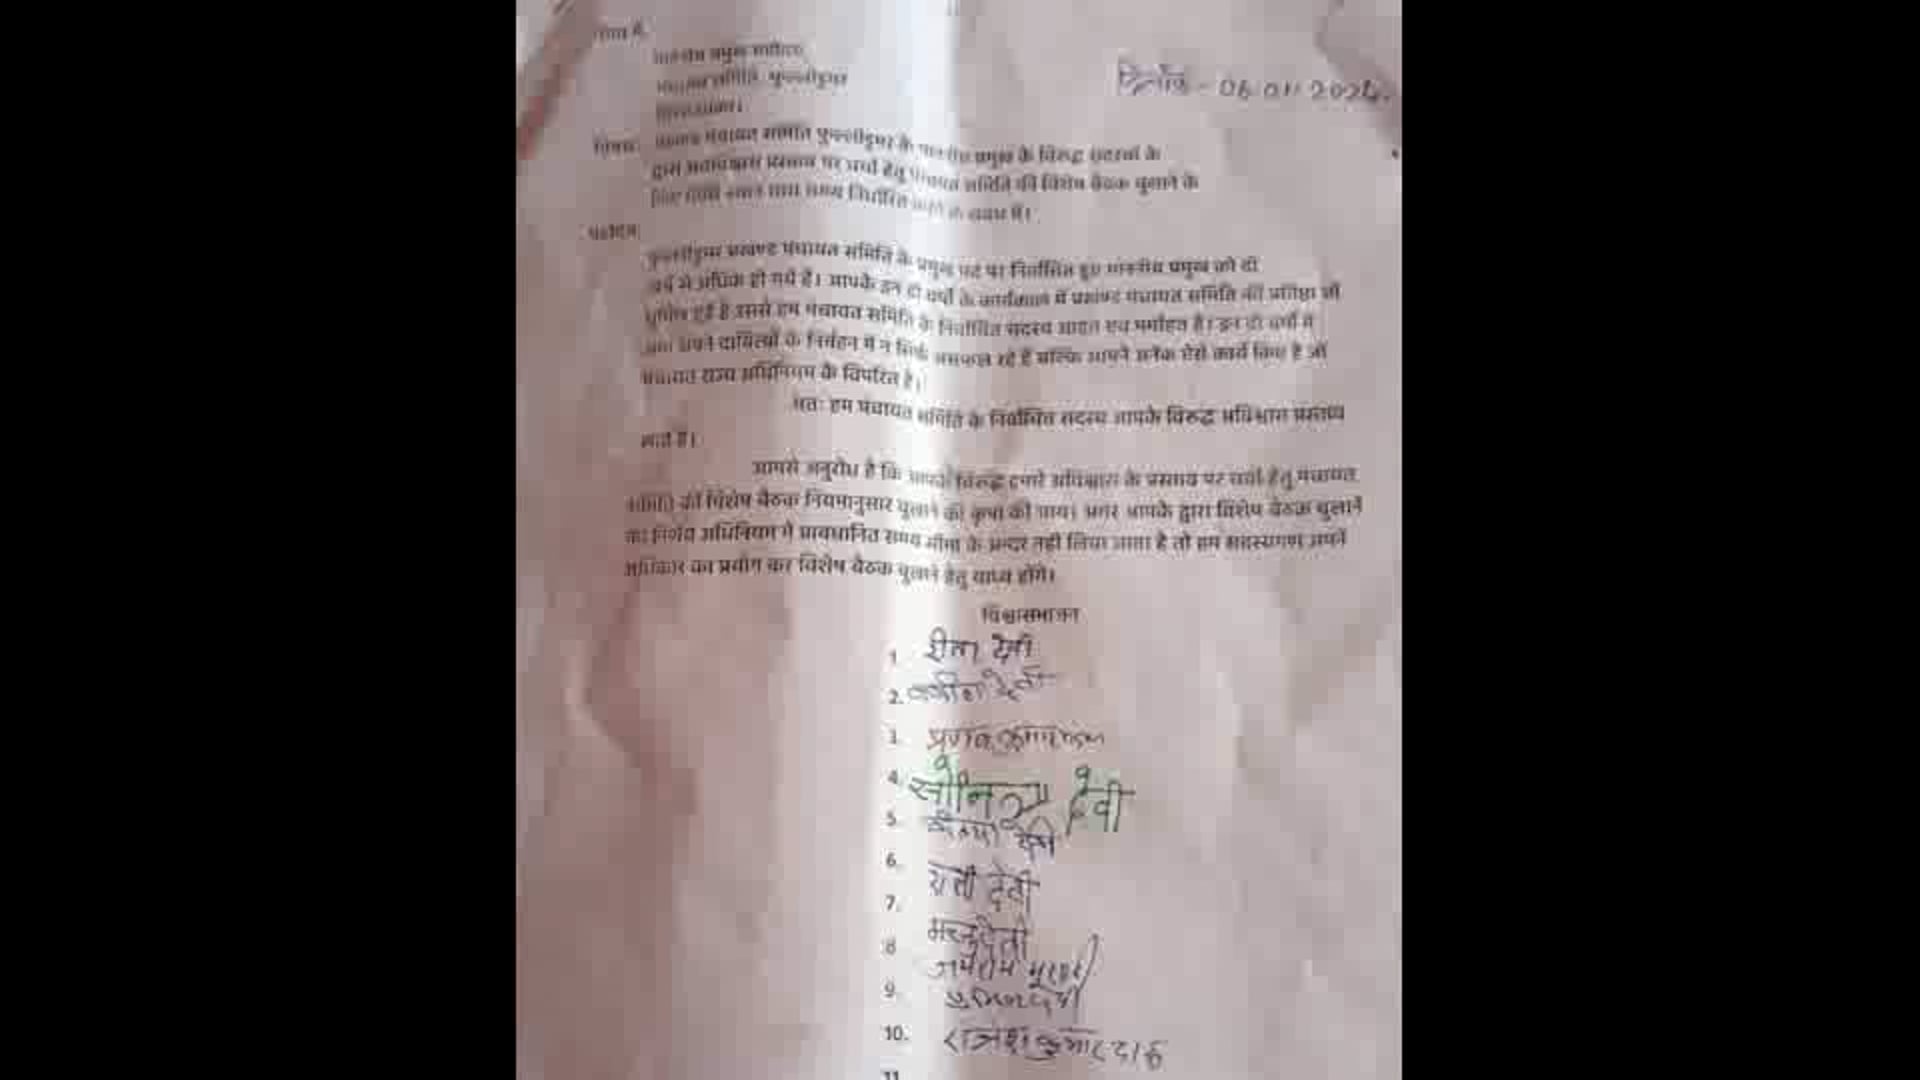 माननीय प्रमुख महोदय
पंचायत समिति, फुल्लीडुमर
दिनाँक - 06.01.2024.
विषय: प्रखण्ड पंचायत समिति फुल्लीडुमर के माननीय प्रमुख के विरुद्ध सदस्यों के
द्वारा अविश्वास प्रस्ताव पर चर्चा हेतु पंचायत समिति की विशेष बैठक बुलाने के
लिए समय निर्धारित करने के संबंध में।
महोदय,
फुल्लीडुमर प्रखण्ड पंचायत समिति के प्रमुख पद पर निर्वाचित हुए माननीय प्रमुख को दो
वर्ष से अधिक हो गये है। आपके इन दो वर्षों के कार्यकाल में प्रखण्ड पंचायत समिति की प्रतिष्ठा जो
धुमिल हुई है उससे हम पंचायत समिति के निर्वाचित सदस्य आहत एवं मर्माहत है। इन दो वर्षों में
आप अपने दायित्वों के निर्वहन में न सिर्फ असफल रहे हैं बल्कि आपने अनेक ऐसे कार्य किए है जो
पंचायत राज्य अधिनियम के विपरित है।
अतः हम पंचायत समिति के निर्वाचित सदस्य आपके विरुद्ध अविश्वास प्रस्ताव
लाते है।
आपसे अनुरोध है कि आपके विरुद्ध हमारे अविश्वास के प्रस्ताव पर चर्चा हेतु पंचायत
समिति की विशेष बैठक नियमानुसार बुलाने की कृपा की जाय। अगर आपके द्वारा विशेष बैठक बुलाने
का निर्णय अधिनियम में प्रावधानित समय सीमा के अन्दर नही लिया जाता है तो हम सदस्यगण अपने
अधिकार का प्रयोग कर विशेष बैठक बुलाने हेतु बाध्य होंगे।
विश्वासभाजन
1. रीता देवी
2. देवी
3. कुमार
4. देवी
5. देवी
6. देवी
7. मंजु देवी
8.
9. देवी
10. राजेश कुमार दास
11